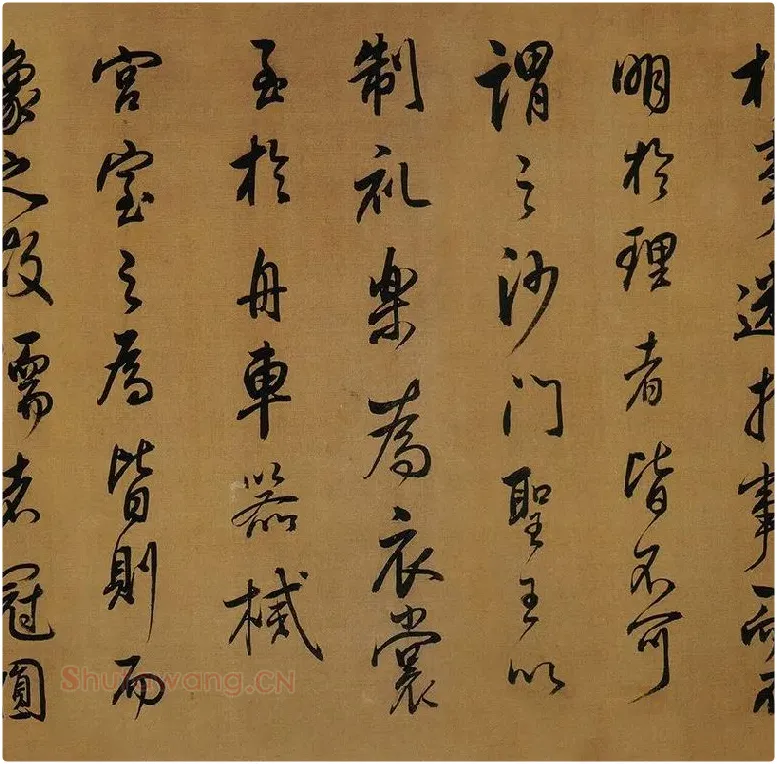 於事達於事而不
明於理者皆不可
謂之沙门聖王以
制礼樂為衣裳
至於舟車器械
宮室之為皆則而
象之故儒者冠圓
Shufawang.CN